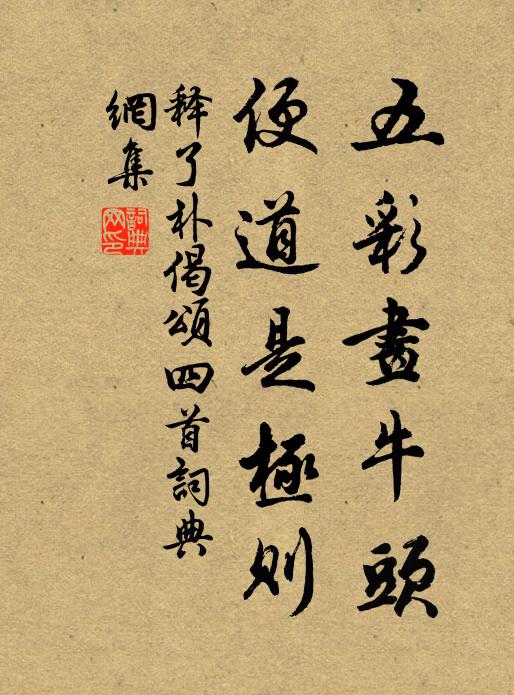 五彩畫牛頭
便道是極則
释了朴偈頌四首詞典
網集
詞典
网印